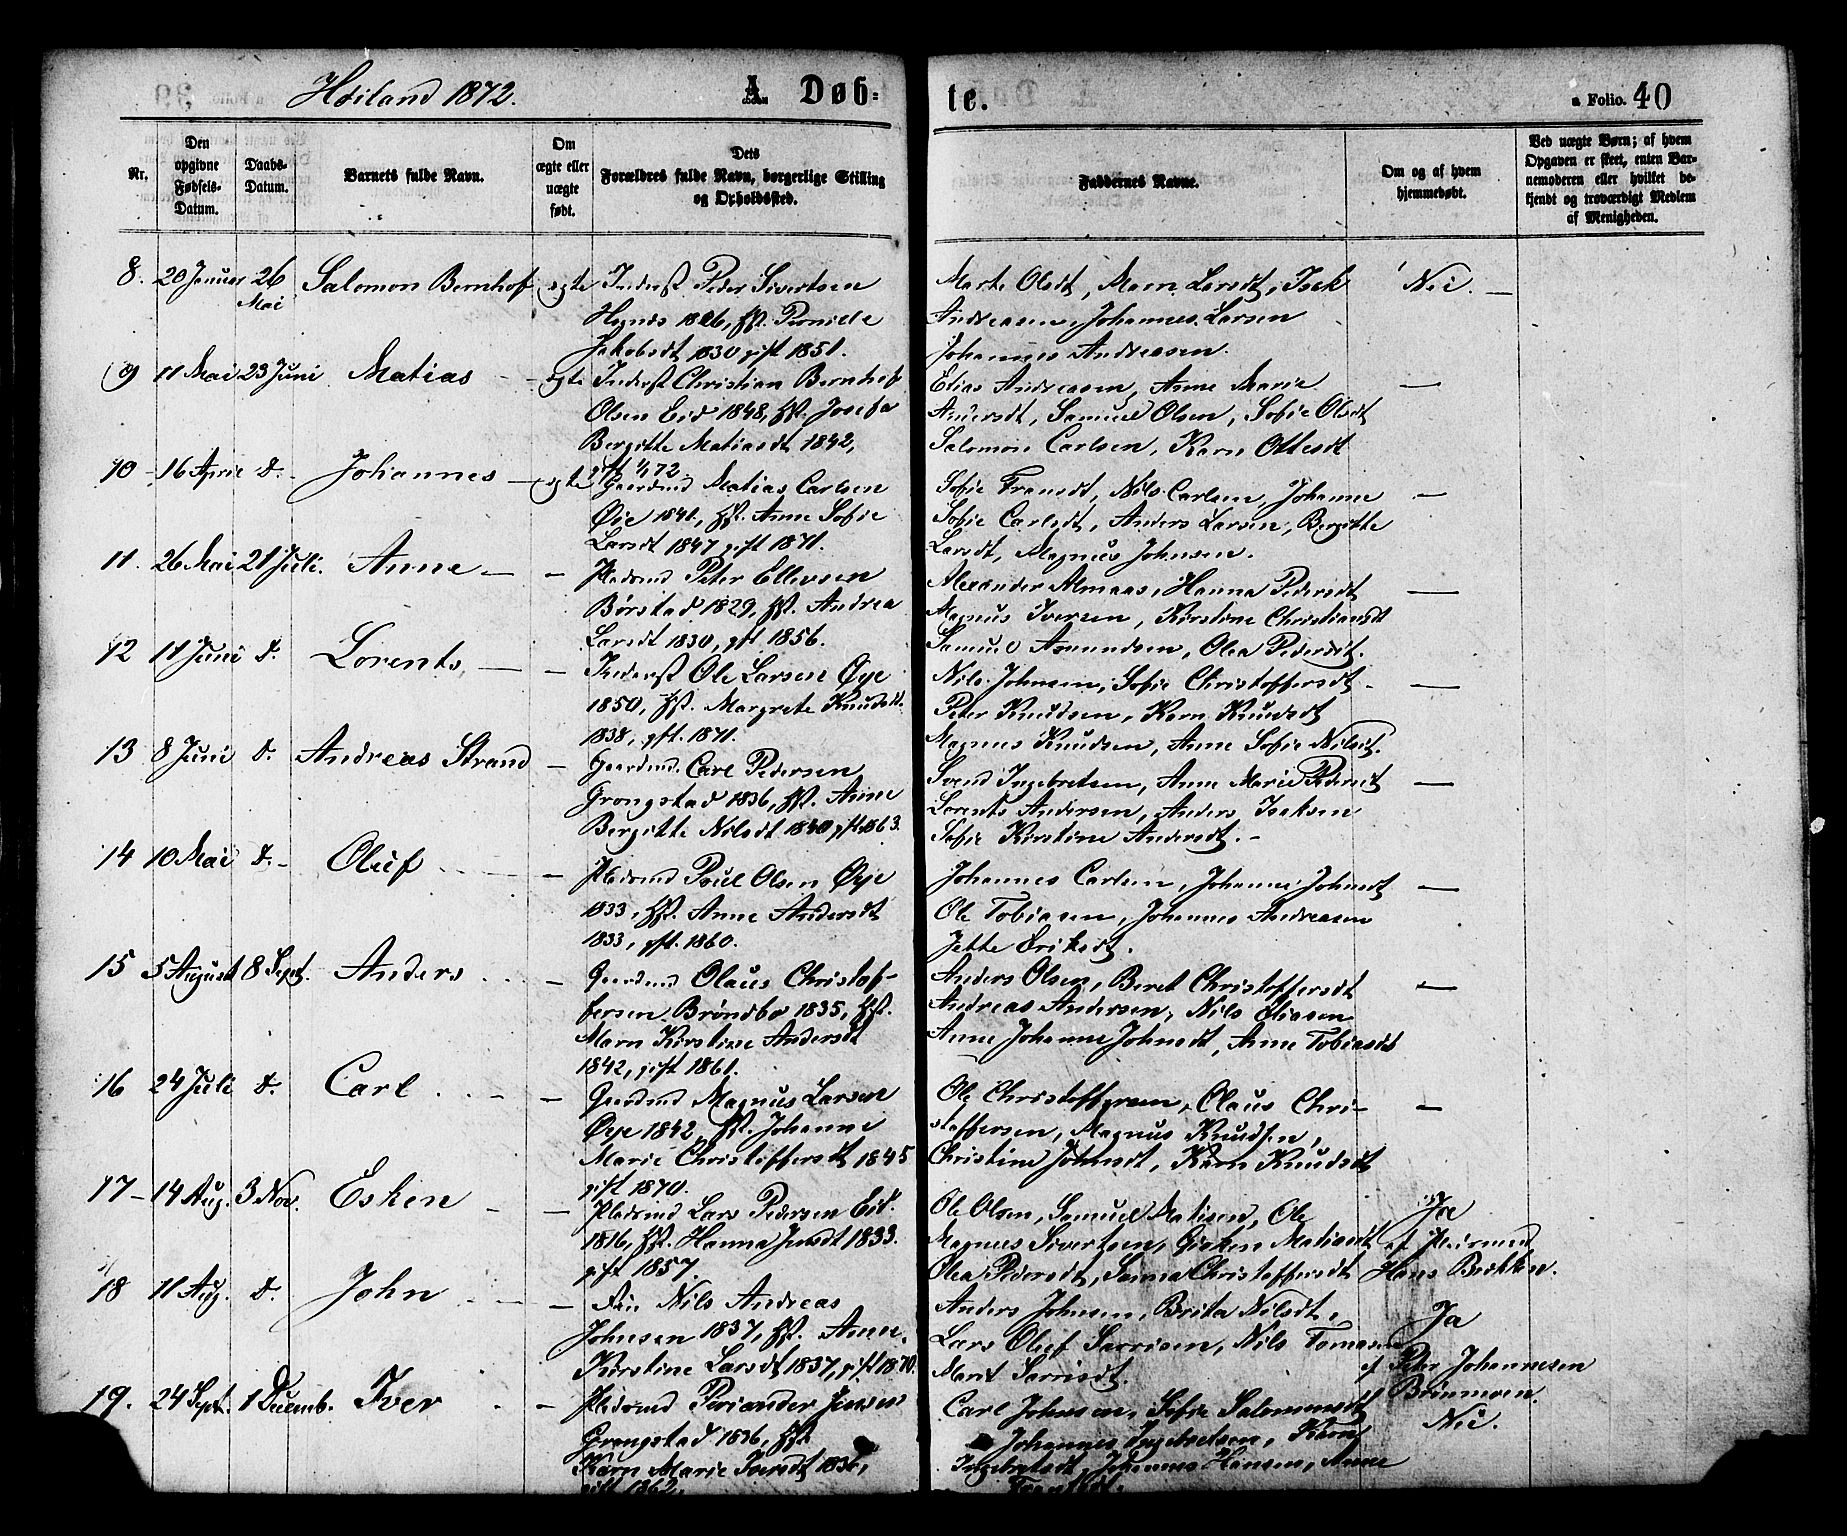 Høiland 1872.
A Døb=
te.
a. Folio. 40
Nr.
Den opgivne Fødsels-Datum.
Daabs-Datum.
Barnets fulde Navn.
Om ægte eller uægte født.
Dets Forældres fulde Navn, borgerlige Stilling og Opholdssted.
Faddernes Navne.
Om og af hvem hjemmedøbt.
Ved uægte Børn; af hvem Opgaven er skeet, enten Barnemoderen eller hvilket bekjendt og troværdigt Medlem af Menigheden.
8. 20 Januar 26 Mai Salomon Bernhof ægte Inderst Peder Sivertsen
1826, Hst.
Jakobsdt 1830 gift 1851.
Marte Olsdt, Marn Larsdt, Isak
Andreasen, Johannes Larsen
Johannes Andreasen.
Nei. —
9 11 Mai 23 Juni Matias — ægte Inderst Christian Bernhof
Olsen Eid 1848, Hst. Josefa
Bergitte Matiasdt 1842,
gft 1/1 72.
Elias Andreasen, Anne Marie
Andersdt, Samuel Olsen, Sofie Olsdt
Salomon Carlsen, Karn Ottesdt
—
10 - 16 April d. - Johannes — ægte Gaardmd Matias Carlsen
Øie 1841, Hst. Anne Sofie
Larsdt 1847 gift 1871.
Sofie Fransdt, Nils Carlsen, Johanne
Sofie Carlsdt, Anders Larsen, Bergitte
Larsdt, Magnus Johnsen.
—
11. 26 Mai 21 Juli. Anne — — Pladsmd Peter Ellevsen
Børstad 1829, Hst. Andrea
Larsdt 1830, gft 1856.
Alexander Almaas, Hanna Pedersdt
Magnus Iversen, Kirstine Christiansdt
Samuel Amundsen, Olea Pedersdt.
—
12 11 Juni d. Lorents, — — Inderst Ole Larsen Øye
1850, Hst. Margrete Knudsdt.
1838, gft. 1871.
Nils Johnsen, Sofie Christoffersdt
Peter Knudsen, Karn Knudsdt
Magnus Knudsen, Anne Sofie Nilsdt.
—
13 8 Juni d. Andreas Strand — Gaardmd. Carl Pedersen
Grongstad 1836, Hst. Anne
Bergitte Nilsdt 1840 gft. 1863.
Svend Ingebretsen, Anne Marie Pedersdt
Lorents Andersen, Anders Isaksen
Sofie Kirstine Andersdt. -
—
14 10 Mai d. - Oluf — Pladsmd Poul Olsen Øye
1833, Hst. Anne Andersdt
1833, gft. 1860.
Johannes Carlsen, Johanne Johnsdt
Ole Tobiasen, Johannes Andreasen
Jette Eriksdt.
—
15 5 August 8 Sept. Anders — Gaardmd Olaus Christof-
fersen Brøndbo 1835, Hst.
Marn Kirstine Andersdt
1842, gift 1861.
Anders Olsen, Beret Christoffersdt
Andreas Andersen, Nils Eliasen
Anne Johanne Johnsdt, Anne Tobiasdt
—
16 24 Juli d. Carl — Gaardmd Magnus Larsen
Øye 1842, Hst. Johanne
Marie Christoffersdt 1845
gift 1870.
Ole Christoffersen, Olaus Chri-
stoffersen, Magnus Knudsen,
Christine Johnsdt, Karn Knudsdt
—
17 - 14 Aug. 3 Nov. Esken — Pladsmd Lars Pedersen Eid.
1816, Hst. Hanna Jensdt 1833.
gift 1857
Ole Olsen, Samuel Matisen, Ole
Magnus Sivertsen, Matiasdt
Olea Pedersdt, Sanna Christoffersdt
Ja
af
Hans Bekken.
18 11 Aug. d. John — Nils Andreas
Johnsen 1837, Hst. Anne
Kirstine Larsdt 1837, gift 1870.
Anders Johnsen, Brita Nilsdt,
Lars Oluf Larrisen, Nils Tomasen
Marit Larrisdt.
Ja
af Peter Johannesen
19. 24 Sept. 1 Decemb. Iver — Pladsmd Periander Jensen
Grongstad 1836, Hst.
Karn Marie Iversdt 1836,
gift 1862.
Carl Johnsen, Sofie Salomonsdt
Johannes Ingebretsen, Karn
Ingebretsdt, Johannes Hansen, Anne
Nei.